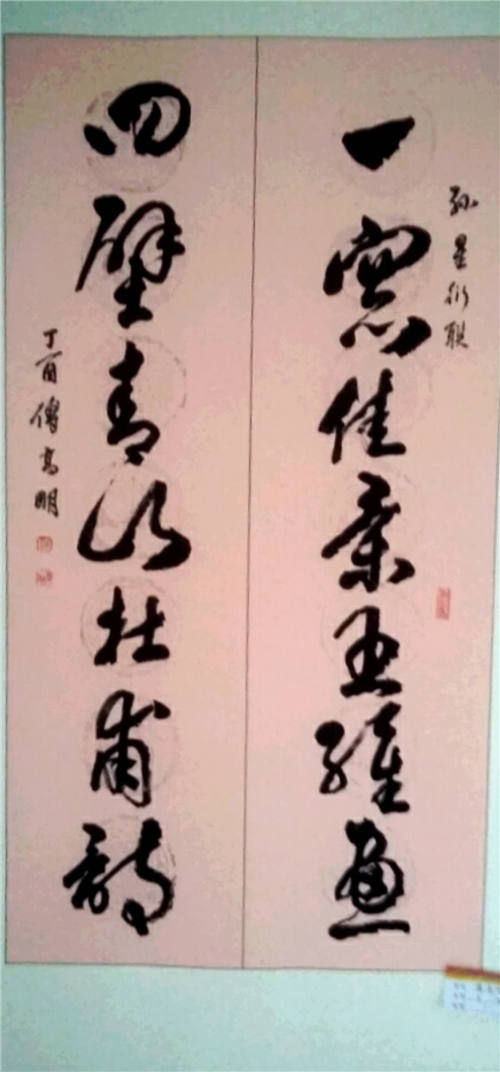 孙星衍联
一窗佳景王維畫
四壁青山杜甫詩
丁酉傅高明